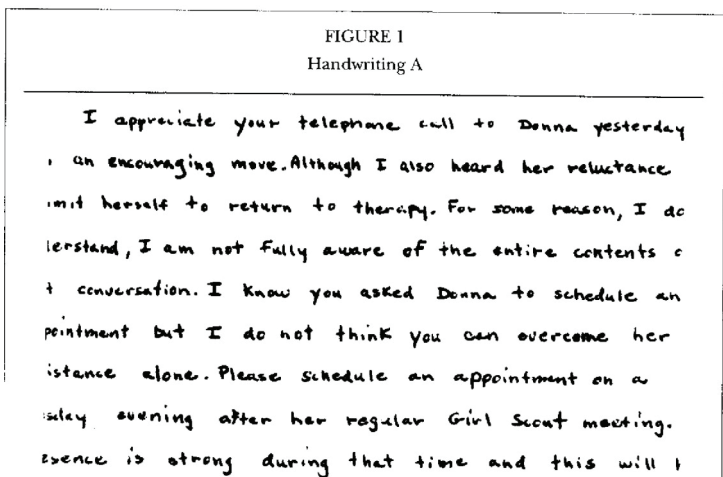 FIGURE 1
Handwriting A
I appreciate your telephone call to Donna yesterday
an encouraging move. Although I also heard her reluctance
mit herself to return to therapy. For some reason, I do
lerstand, I am not fully aware of the entire contents o
t conversation. I know you asked Donna to schedule an
pointment but I do not think you can overcome her
istance alone. Please schedule an appointment on a
sday evening after her regular Girl Scout meeting.
esence is strong during that time and this will